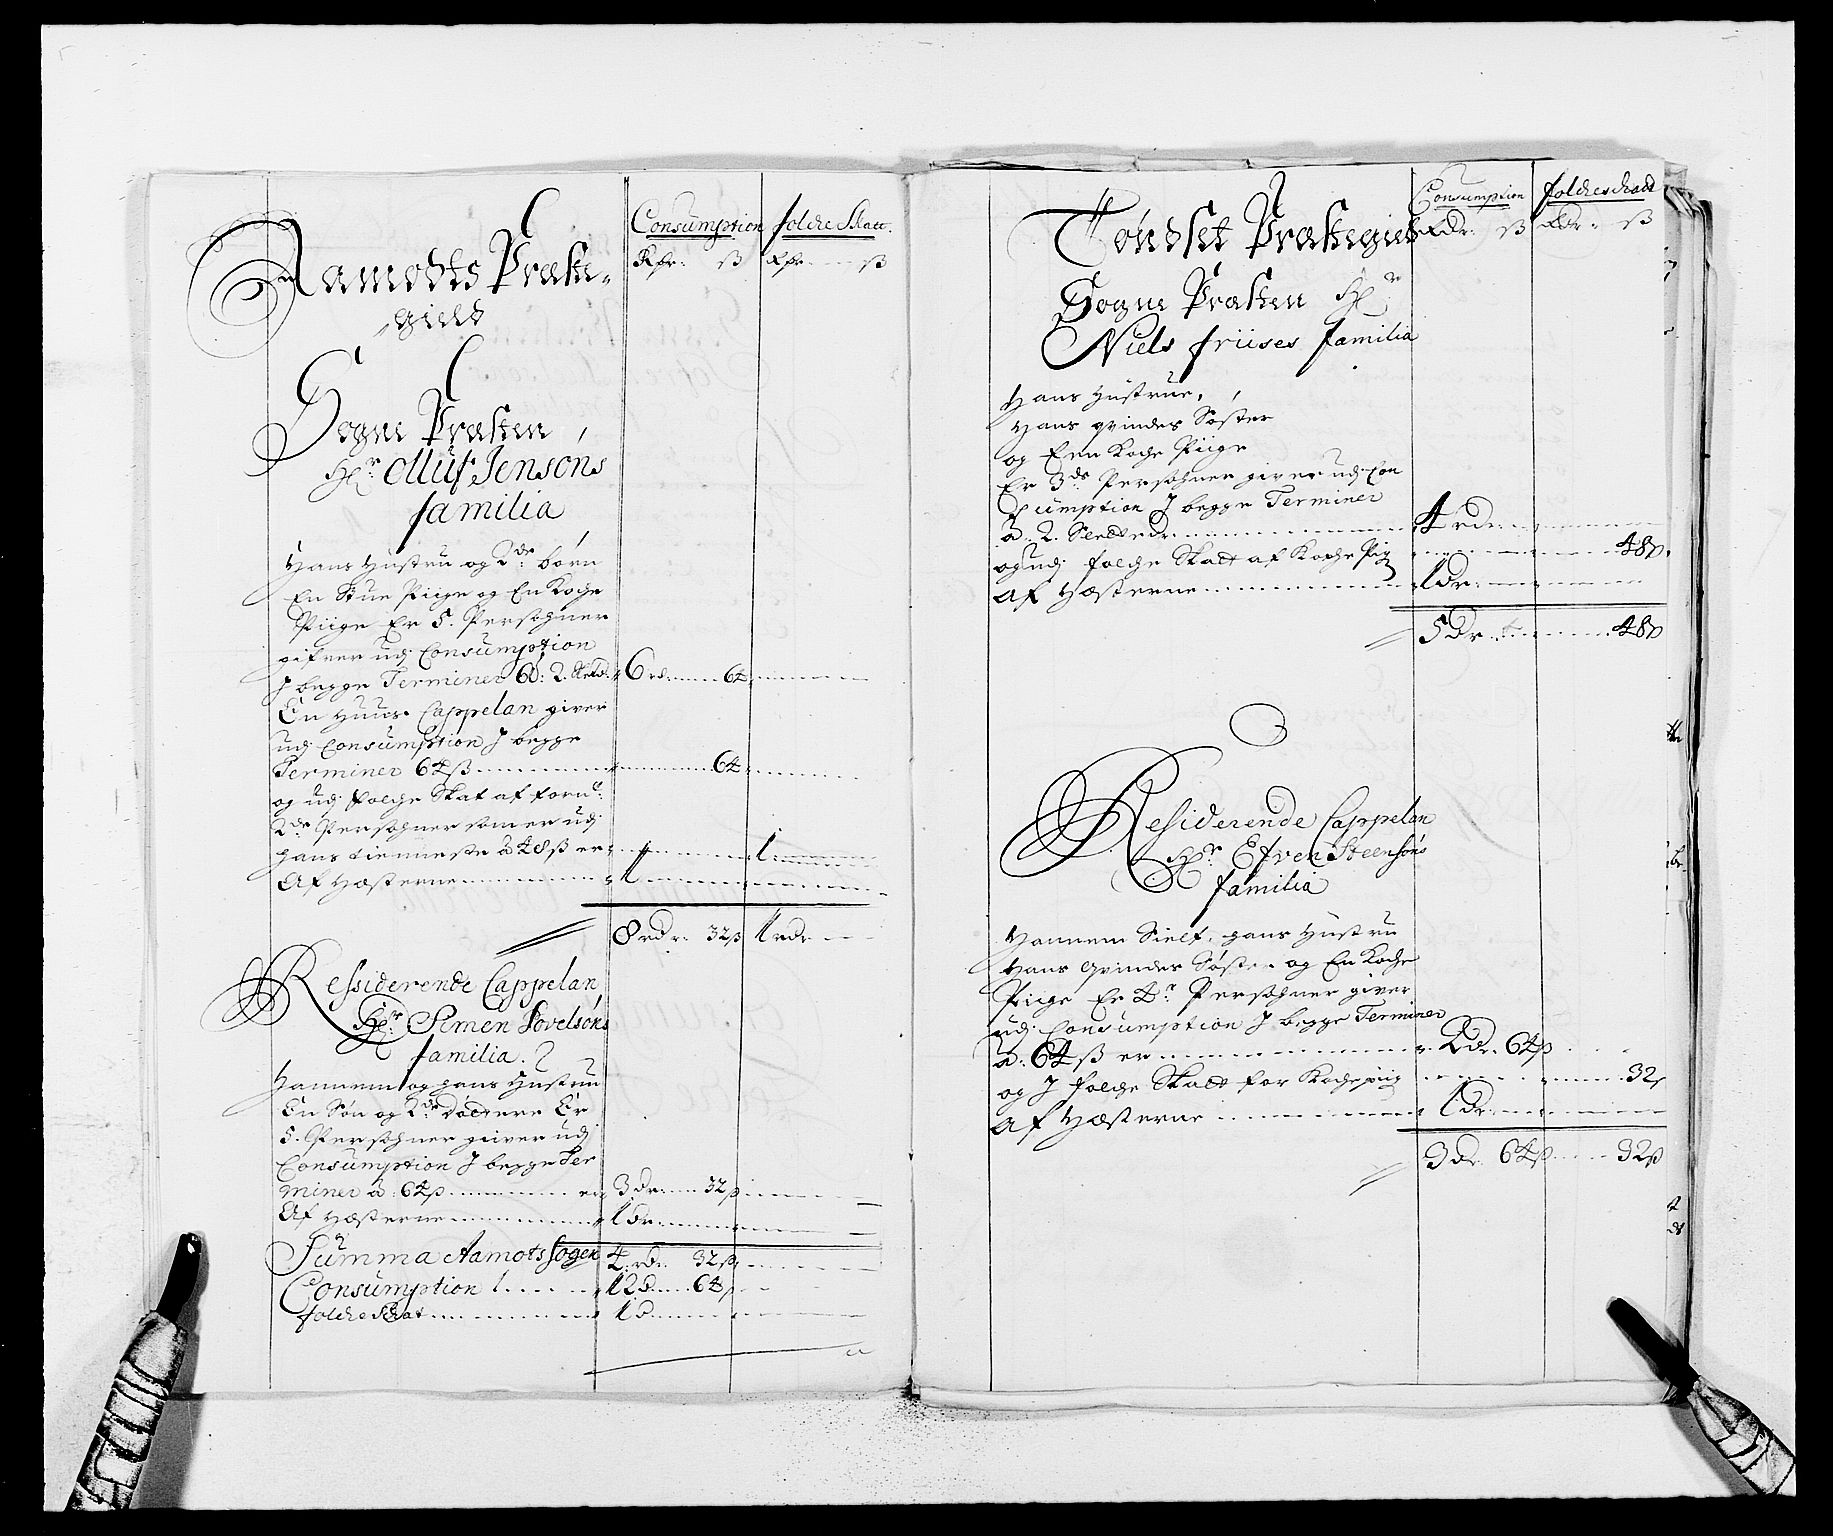 Consumption folcke Skatt.
Rdr: ß Rdr: ß
Aamodts Præste
gield
Sogne Præsten
Hr Olluf Jensøns
familia
Hans Hustru og 2de børn
En Stue Piige og En Koche
Piige Er 5. Persohner
gifver udj Consumption
J begge Terminer a: 2. Sletd: 6 rd. 64
En Huus Cappelan giver
udj Consumption J begge
Terminer 64 ß 64
og udj folche Skat af
2de Persohner som er udj
hans tienneste à 48 ß er 1
Af Hæsterne 1
8 rdr: 32ß 1 rdr
Ressiderende Cappelan
Hr Simen Povelsøns
familia.
Hannem og hans Hustru
En Søn og 2de døttere Er
5. Persohner giver udj
Consumption J begge Ter
miner à: 64ß er 3 dr. 32ß
Af Hæsterne 1 dr.
Summa Aamots Sogen 4 rdr 32ß
Consumption 12 d. 64ß
folche Skat 1 d.
Consumption folcheskatt
Rdr: ß Rdr: ß
Tøndset Præstegield
Sogne Præsten Hr
Niels friises familia
Hans Hustrue,
Hans qvindes Søster
og Een Koche Piige
Er 3de Persohner giver udj Con
sumption J begge Terminer
à: 2. Slettedr. 4 rdr.
og udj folche Skatt af Koche Pig 48ß.
Af Hæsterne 1 dr.
5 dr. 48ß
Residerende Cappelan
Hr Efven Steensøns
familia
Hannem Sielf, hans Hustru
Hans qvindes Søster og En Koche
Piige Er 4r Persohner giver
udj Consumption J begge Terminer
à: 64 ß er 2 dr. 64ß
og J folche Skatt for Koche piig 32ß
Af Hæsterne 1 dr.
3 dr 64ß 32ß